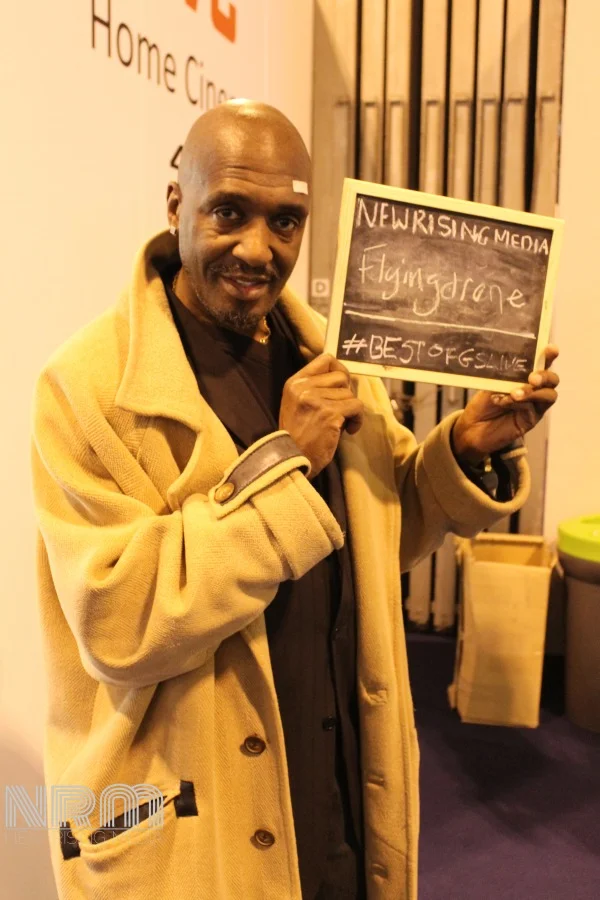 Home
NEWRISING MEDIA
Flyingdrone
#BESTOFGSLIVE
NRM